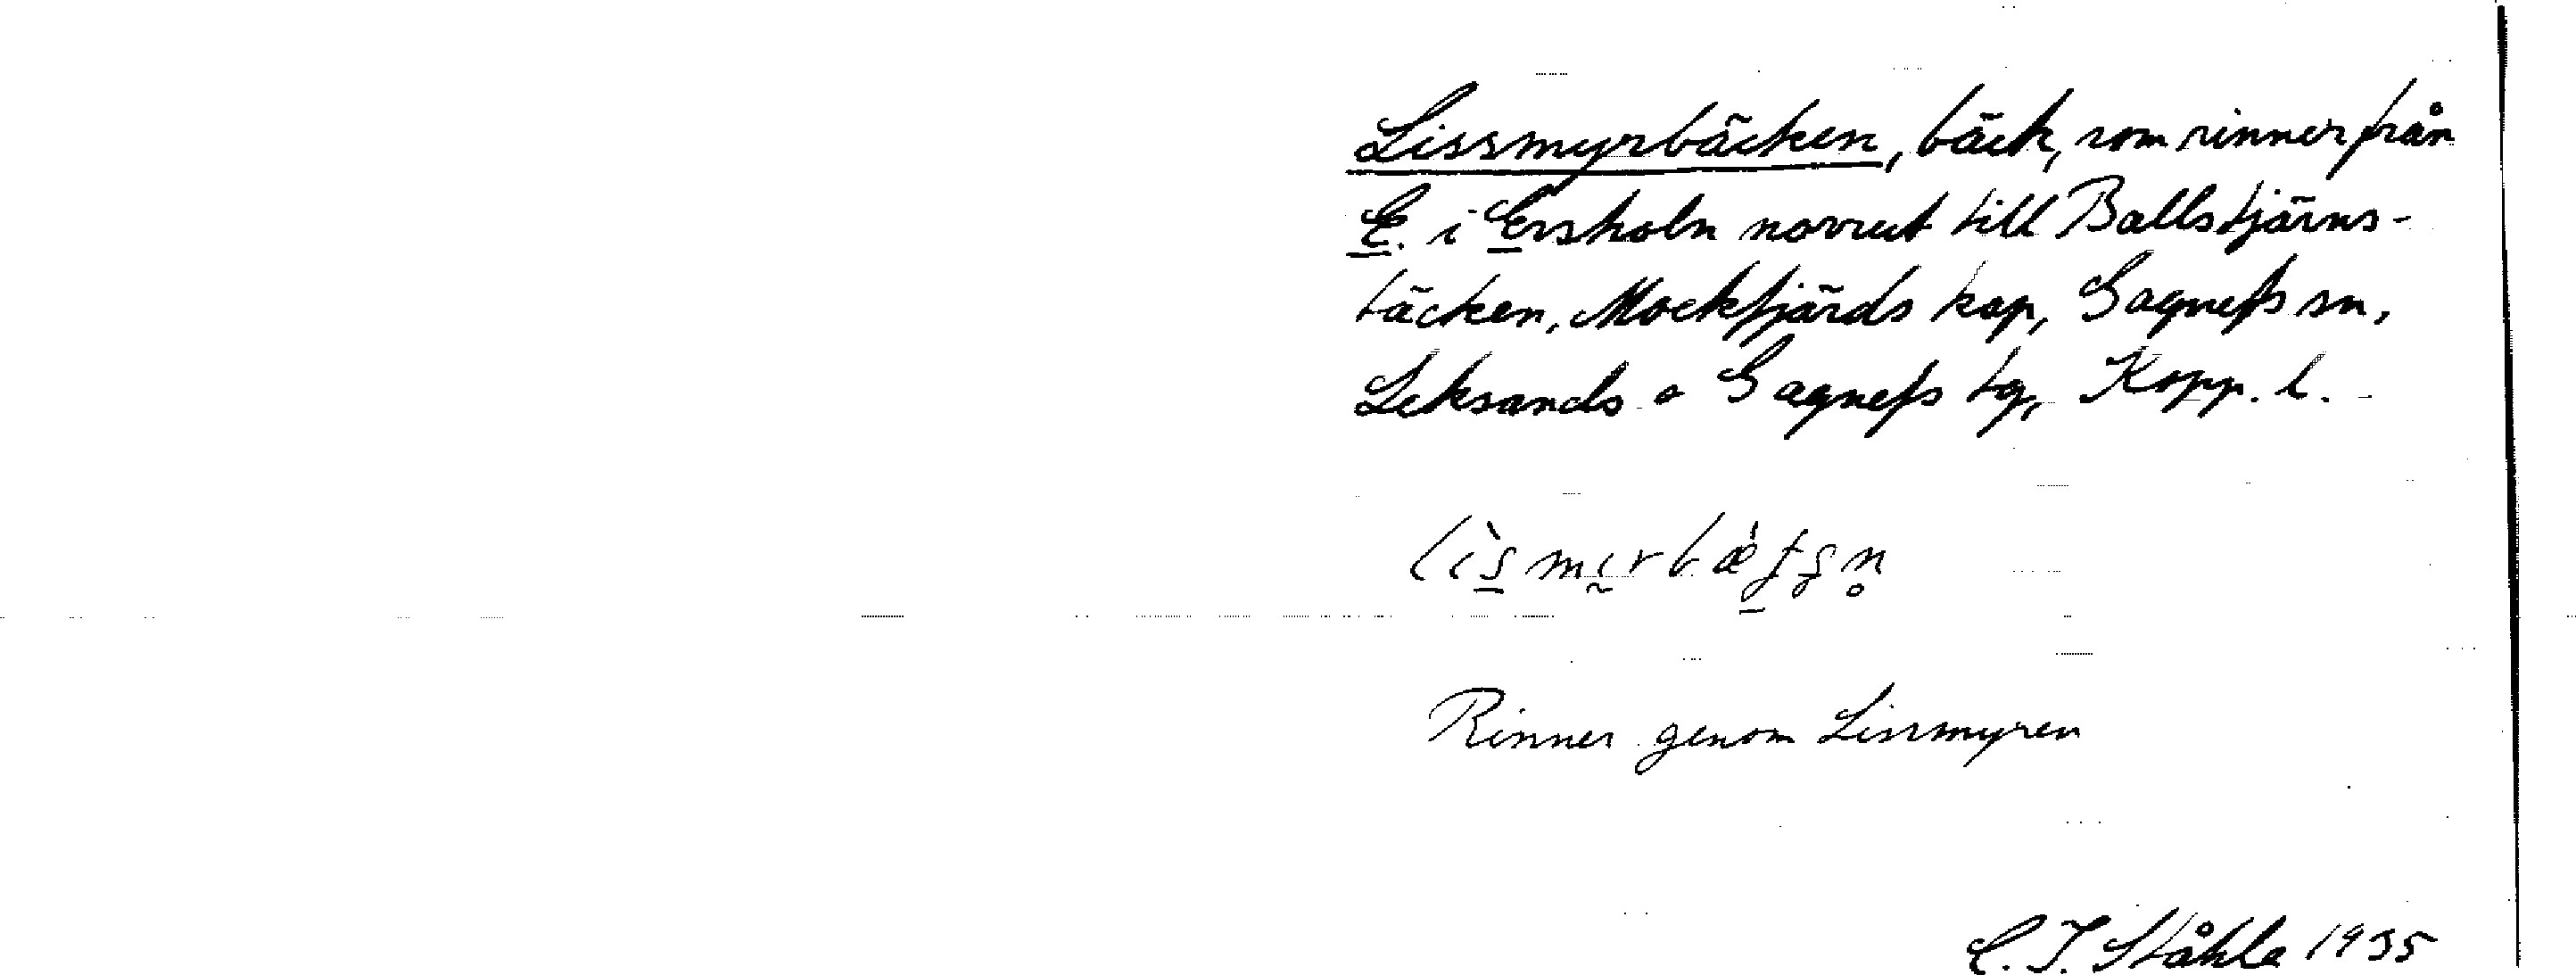 Lissmyrbäcken, bäck, som rinner från
E. i Ersholn norrut till Ballstjärns-
bäcken, Mockfjärds kap, Gagnefs sn,
Leksands o Gagnefs tg, Kopp. l.
Rinner genom Lissmyren
C. I. Ståhle 1935